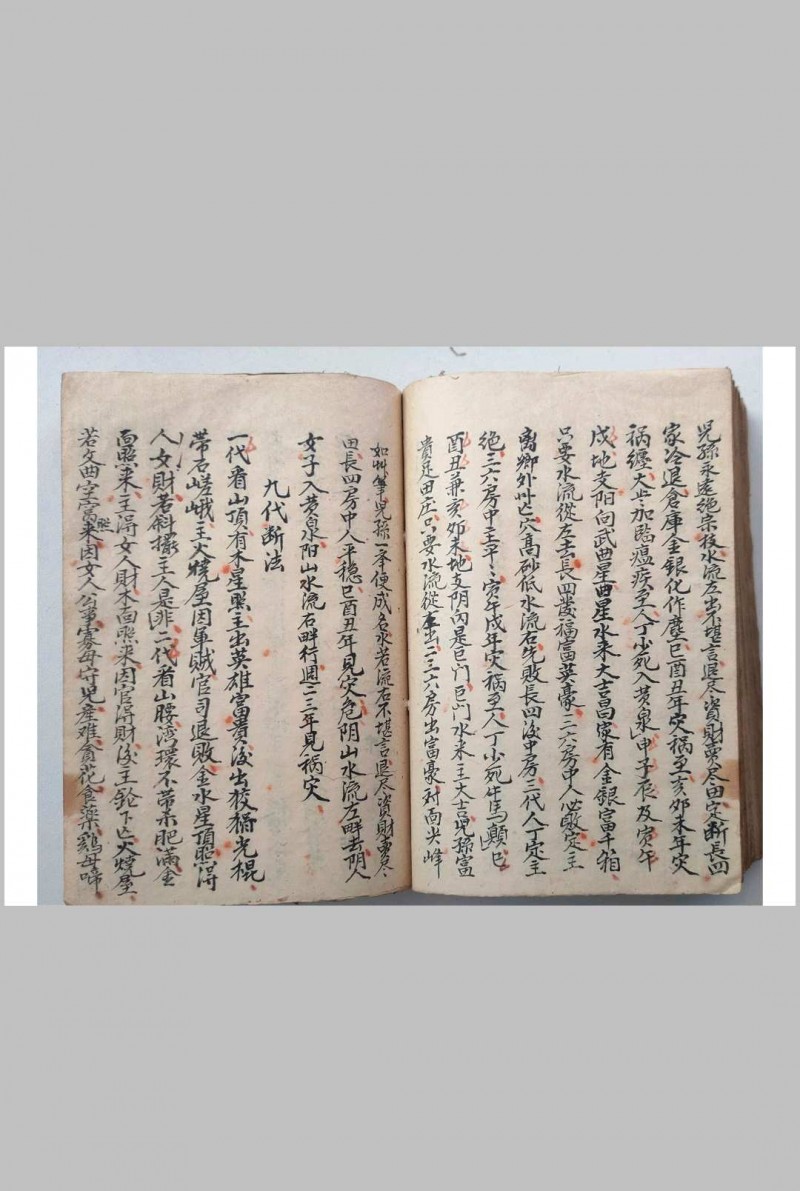 児孫永遠絶宗枝水流左出不堪言退尽資財賣尽田定断長四
家冷退倉庫金銀化作塵巳酉丑年灾禍至亥卯未年灾
禍纏大𫝶加臨瘟疾至人丁少死入黄泉申子辰及寅午
戌地支阳向武曲星曲星水来大吉昌家有金銀富千箱
只要水流從左去長四歲福富英豪三六房中人必敗定主
離鄉外卅亡穴高砂低水流右先敗長四後中房三代人丁定主
絶三六房中主平々寅午戌年灾禍至人丁少死牛馬顛巳
酉丑兼亥卯未地支阴丙是巨門巨門水来主大吉児孫富
貴足田庄只要水流從右出二三六房出富豪对面尖峰
如卅筆児孫一举便成名水若流右不堪言退尽資財賣尽
田長四房中人平穏巳酉丑年見灾危阴山水流左畔去阴人
女子入黄泉阳山水流右畔行週二三年見禍灾
九代断法
一代看山頂有木星照主出英雄富貴後出狡猾光棍
带石嵯峨主火燒屋因軍賊官司退敗金水星頂照得
人女財若斜擺主人是非二代看山腰湾環不带赤肥满金
面照来主得女人財木面照来因官得財後主轮下亡火燒屋
若文曲空窩照来因女人公事寡母守児産难貪花食藥鷄母啼